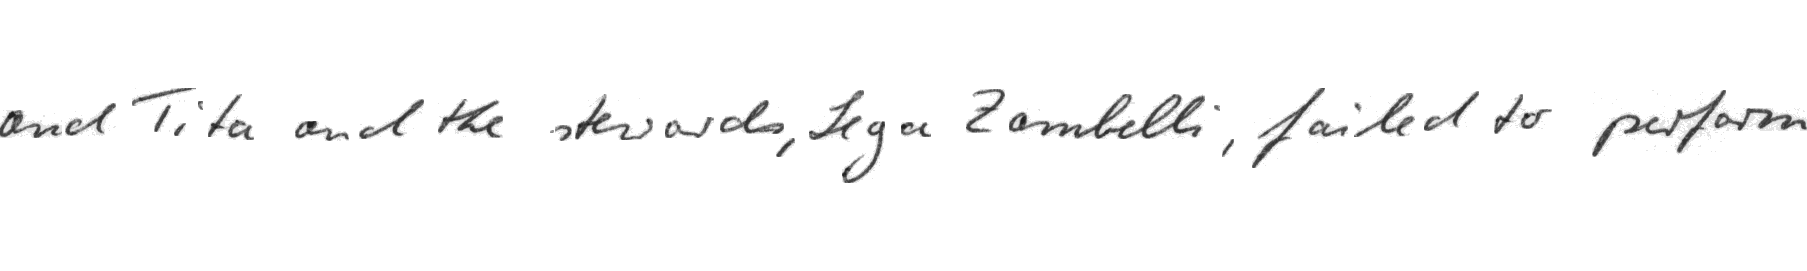 and Tita and the stewards, Lega Zambelli, failed to perform